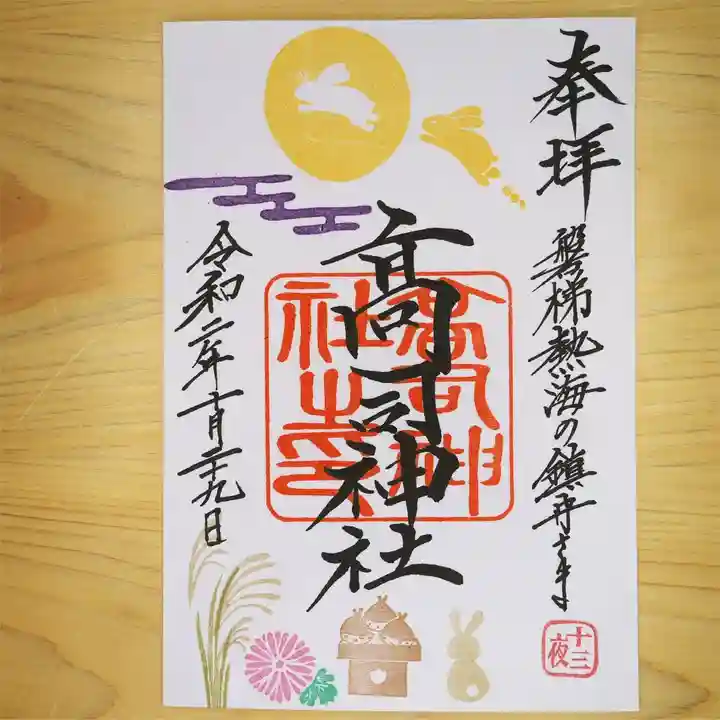 奉拝
磐梯熱海の鎮守さま
十三夜
髙司神社
髙司神社之印
令和二年十月二十九日